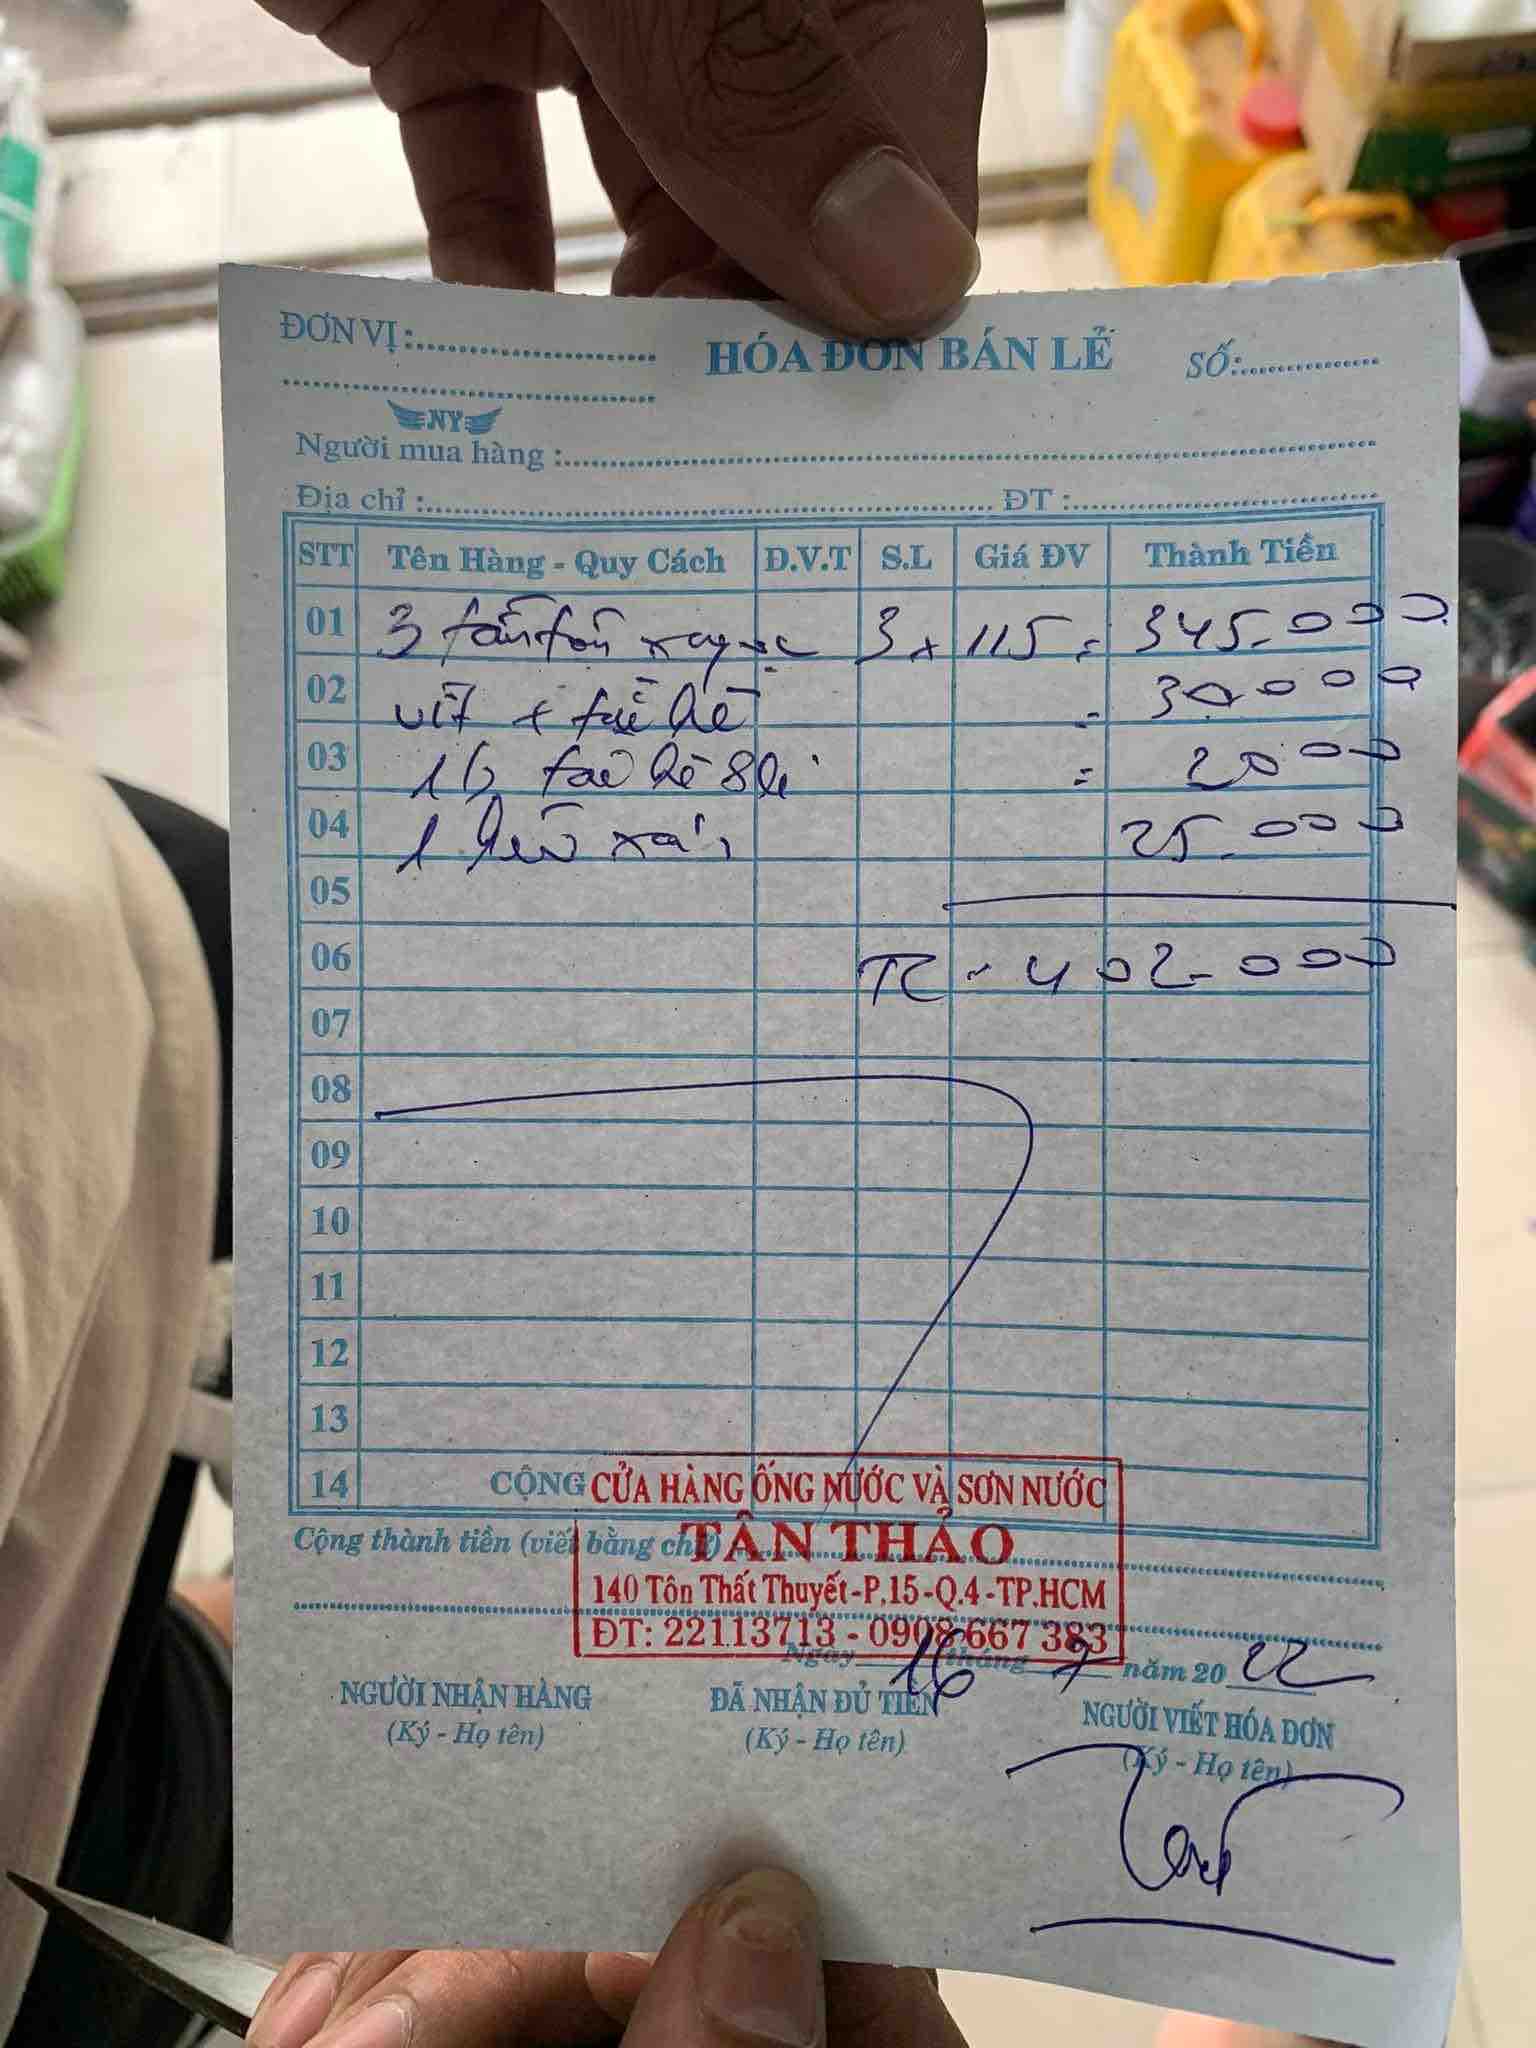 ĐƠN VỊ:
HÓA ĐƠN BÁN LẺ
SỐ:
NY
Người mua hàng :
Địa chỉ : ĐT :
STT Tên Hàng - Quy Cách Đ.V.T S.L Giá ĐV Thành Tiền
01 3 tấn tôn 3 x 115 = 345.000
02 vít + tắc kê = 30.000
03 tắc kê = 2000
04 1 25.000
05
06 TC = 402.000
07
08
09
10
11
12
13
14 CỘNG
CỬA HÀNG ỐNG NƯỚC VÀ SƠN NƯỚC
TÂN THẢO
140 Tôn Thất Thuyết-P.15-Q.4-TP.HCM
ĐT: 22113713 - 0908 667 383
Cộng thành tiền (viết bằng chữ)
Ngày 16 tháng 7 năm 20 22
NGƯỜI NHẬN HÀNG ĐÃ NHẬN ĐỦ TIỀN NGƯỜI VIẾT HÓA ĐƠN
(Ký - Họ tên) (Ký - Họ tên) (Ký - Họ tên)